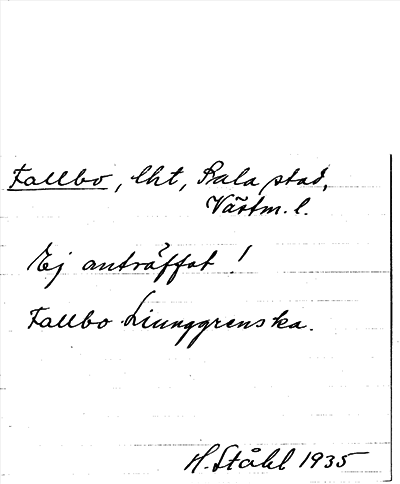 Fallbo, lht, Sala stad,
Västm. l.
Ej anträffat!
Fallbo Ljunggrenska.
H. Ståhl 1935